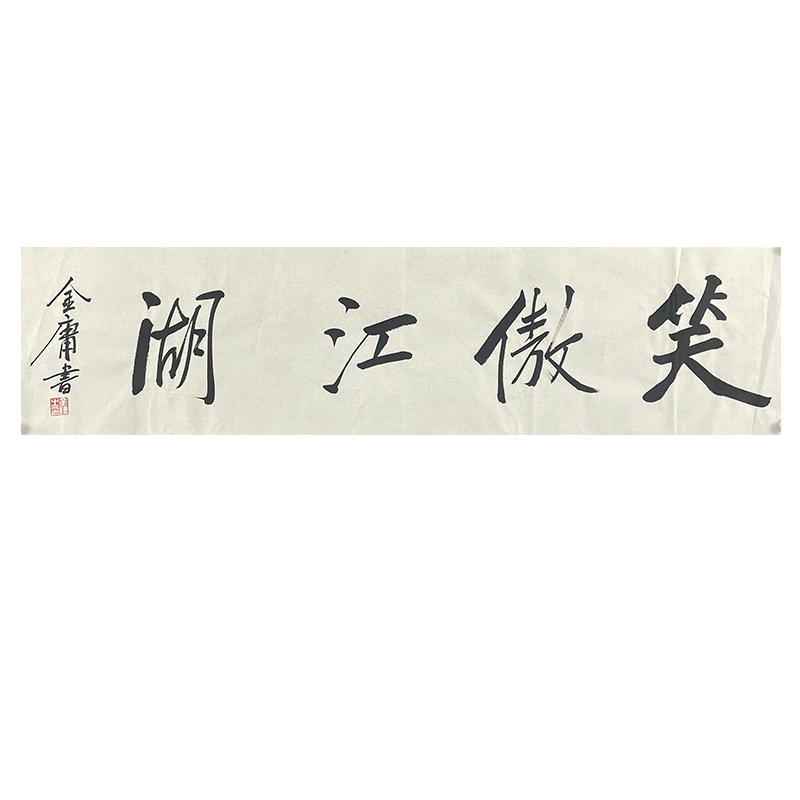 笑傲江湖
金庸書